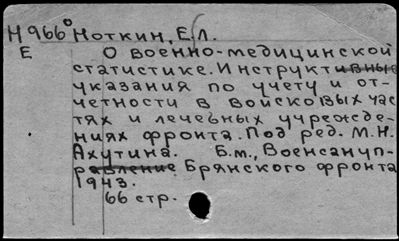 Н966° Ноткин, Е.Л.
Е О военно-медицинской
статистике. Инструктивные
указания по учету и от-
четности в войсковых час
тях и лечебных учрежде-
ниях фронта. Под ред. М.Н.
Ахутина. Б.м., Военсануп-
равление Брянского фронта
1943.
66 стр.